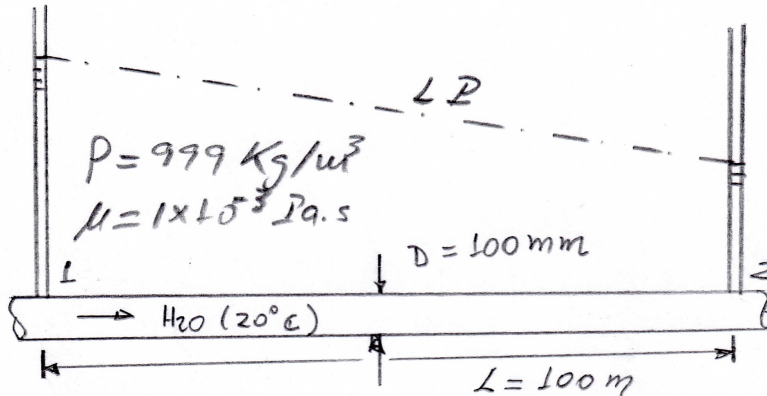 L P
ρ = 999 Kg/m³
μ = 1×10⁻³ Pa.s
1
D = 100 mm
2
H2O (20°c)
L = 100 m